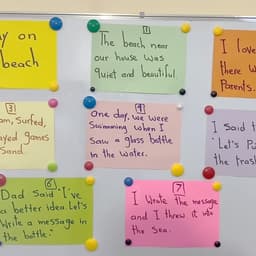 y on
beach
1
The beach near
our house was
quiet and beautiful.
I love
there w
Parents.
3
am, Surfed,
ayed games
Sand.
4
One day, we were
Swimming when I
Saw a glass bottle
in the water.
I said t
"Let's Pu
the trash
6
Dad said "I've
a better idea. Let's
Write a message in
the bottle."
7
I Wrote the message
and I threw it into
the Sea.